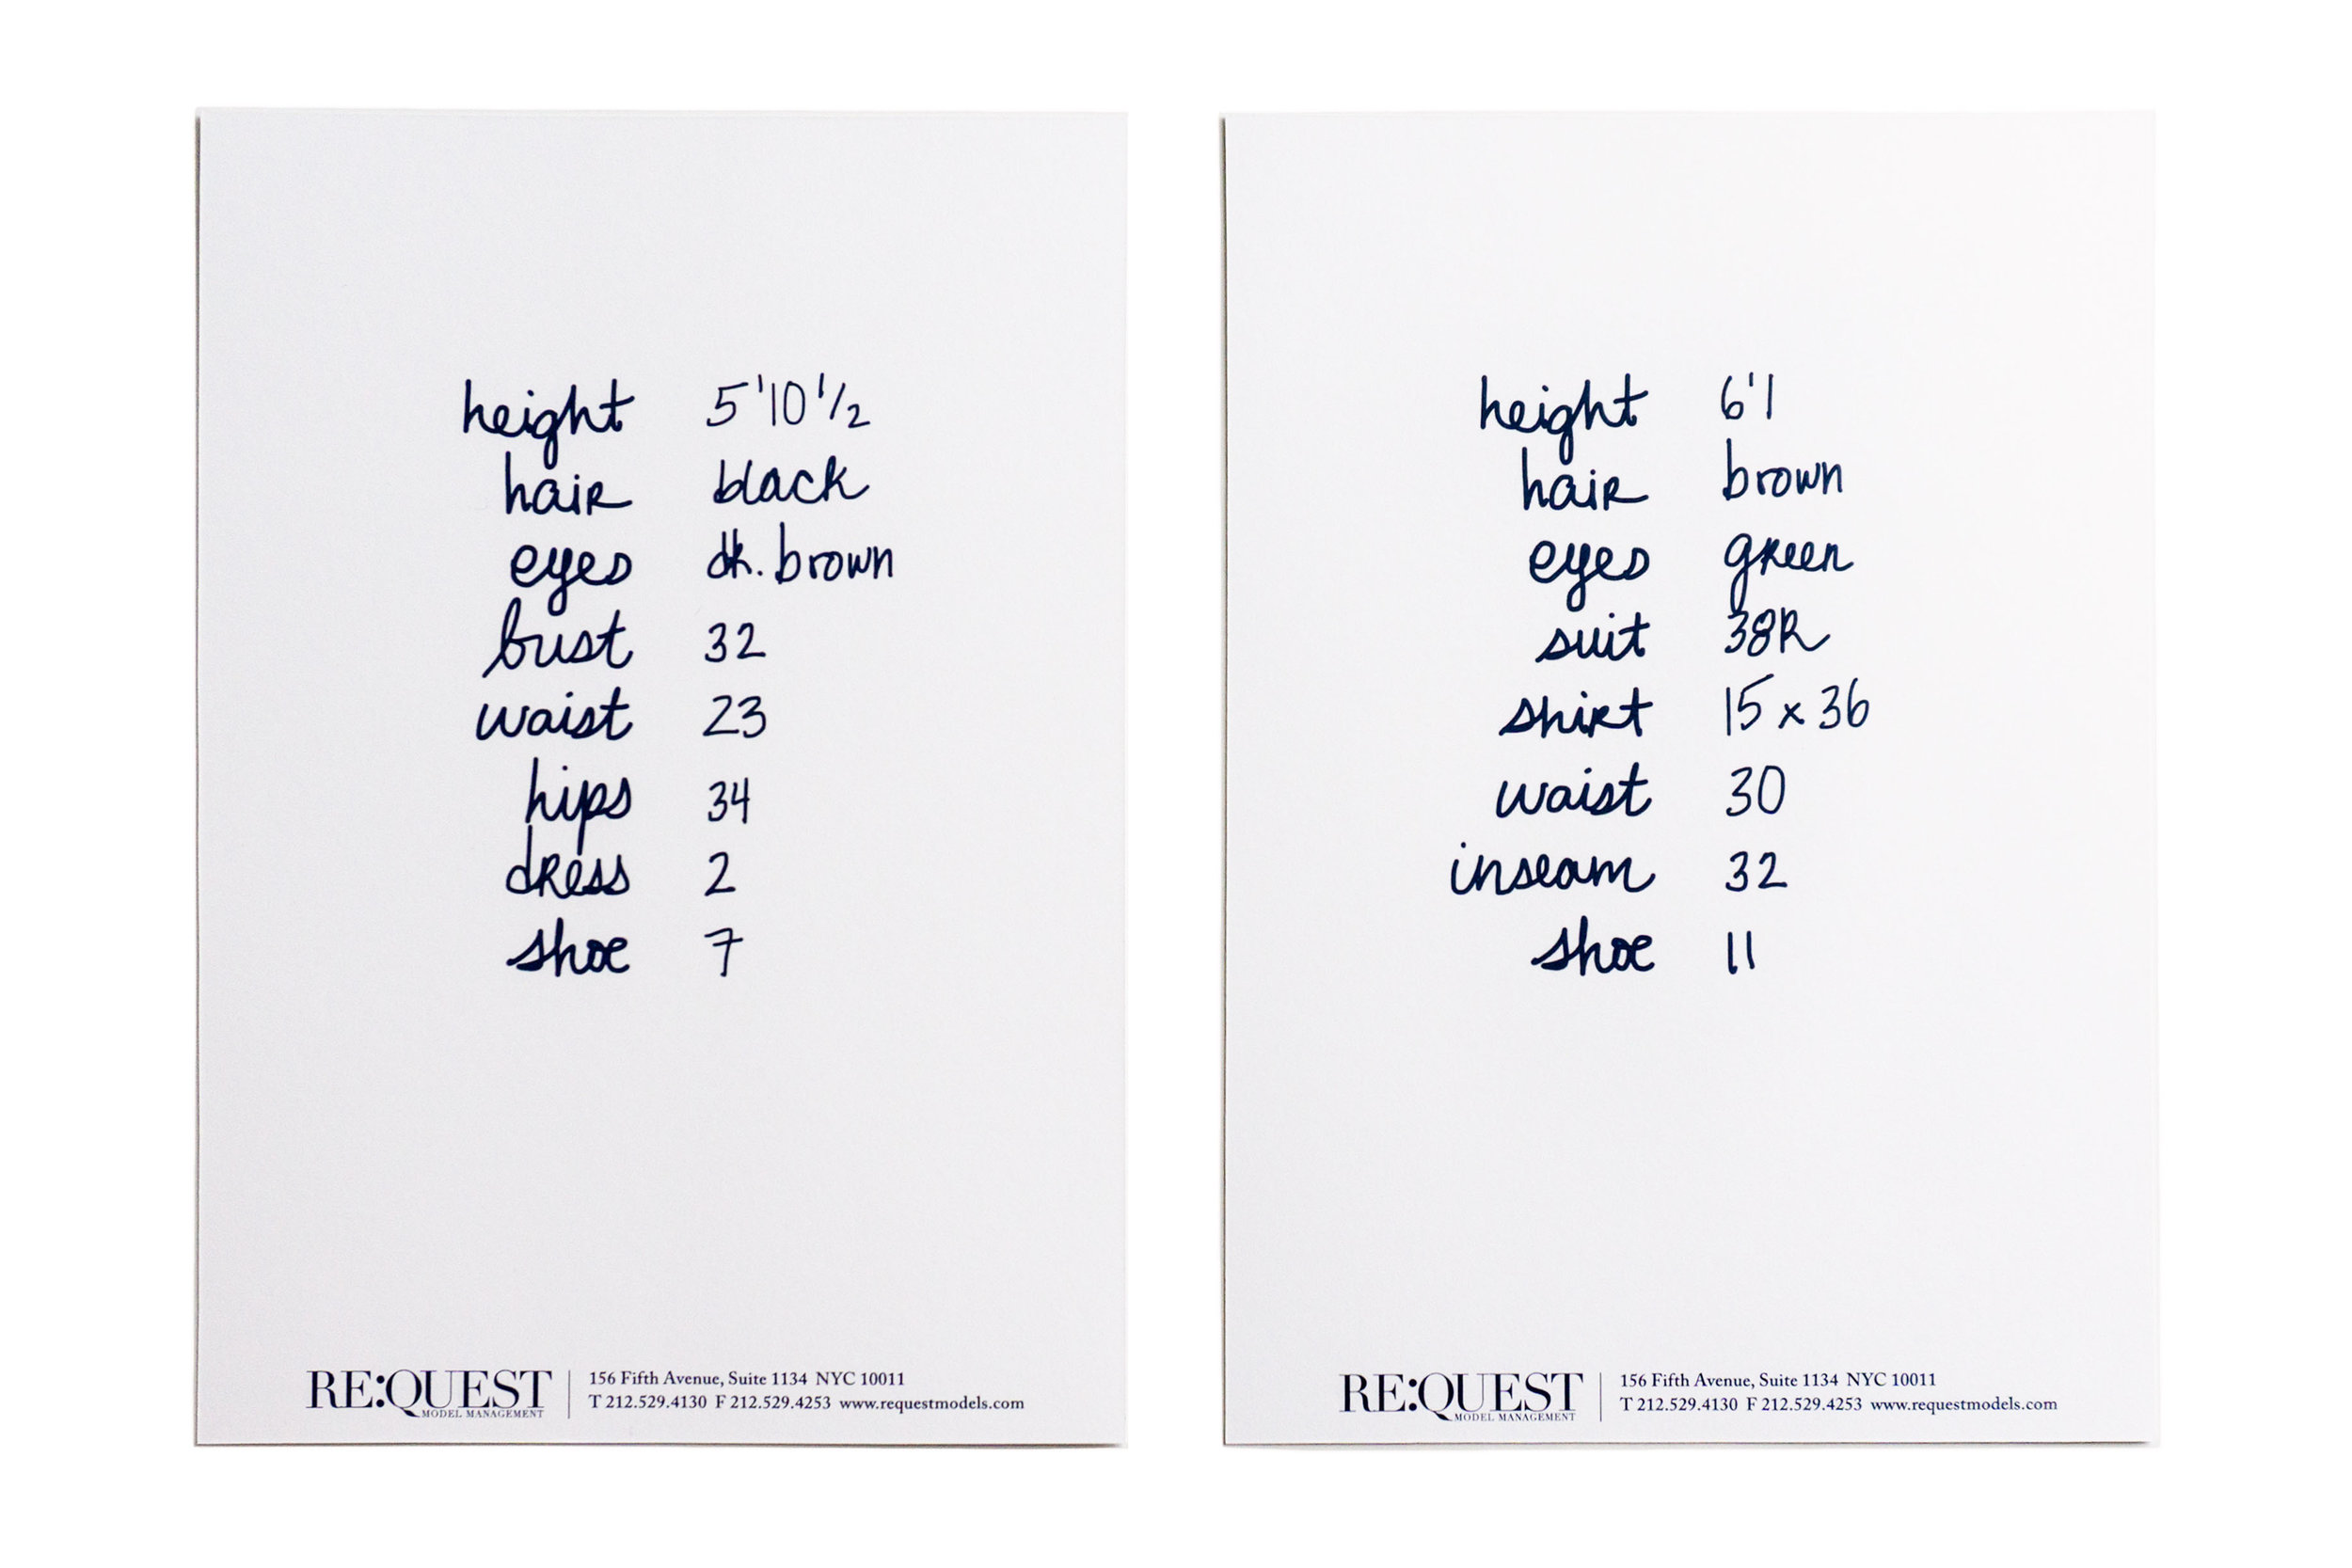 height 5'10 1/2
hair black
eyes dk. brown
bust 32
waist 23
hips 34
dress 2
shoe 7
RE:QUEST
MODEL MANAGEMENT
156 Fifth Avenue, Suite 1134 NYC 10011
T 212.529.4130 F 212.529.4253 www.requestmodels.com
height 6'1
hair brown
eyes green
suit 38R
shirt 15 x 36
waist 30
inseam 32
shoe 11
RE:QUEST
MODEL MANAGEMENT
156 Fifth Avenue, Suite 1134 NYC 10011
T 212.529.4130 F 212.529.4253 www.requestmodels.com